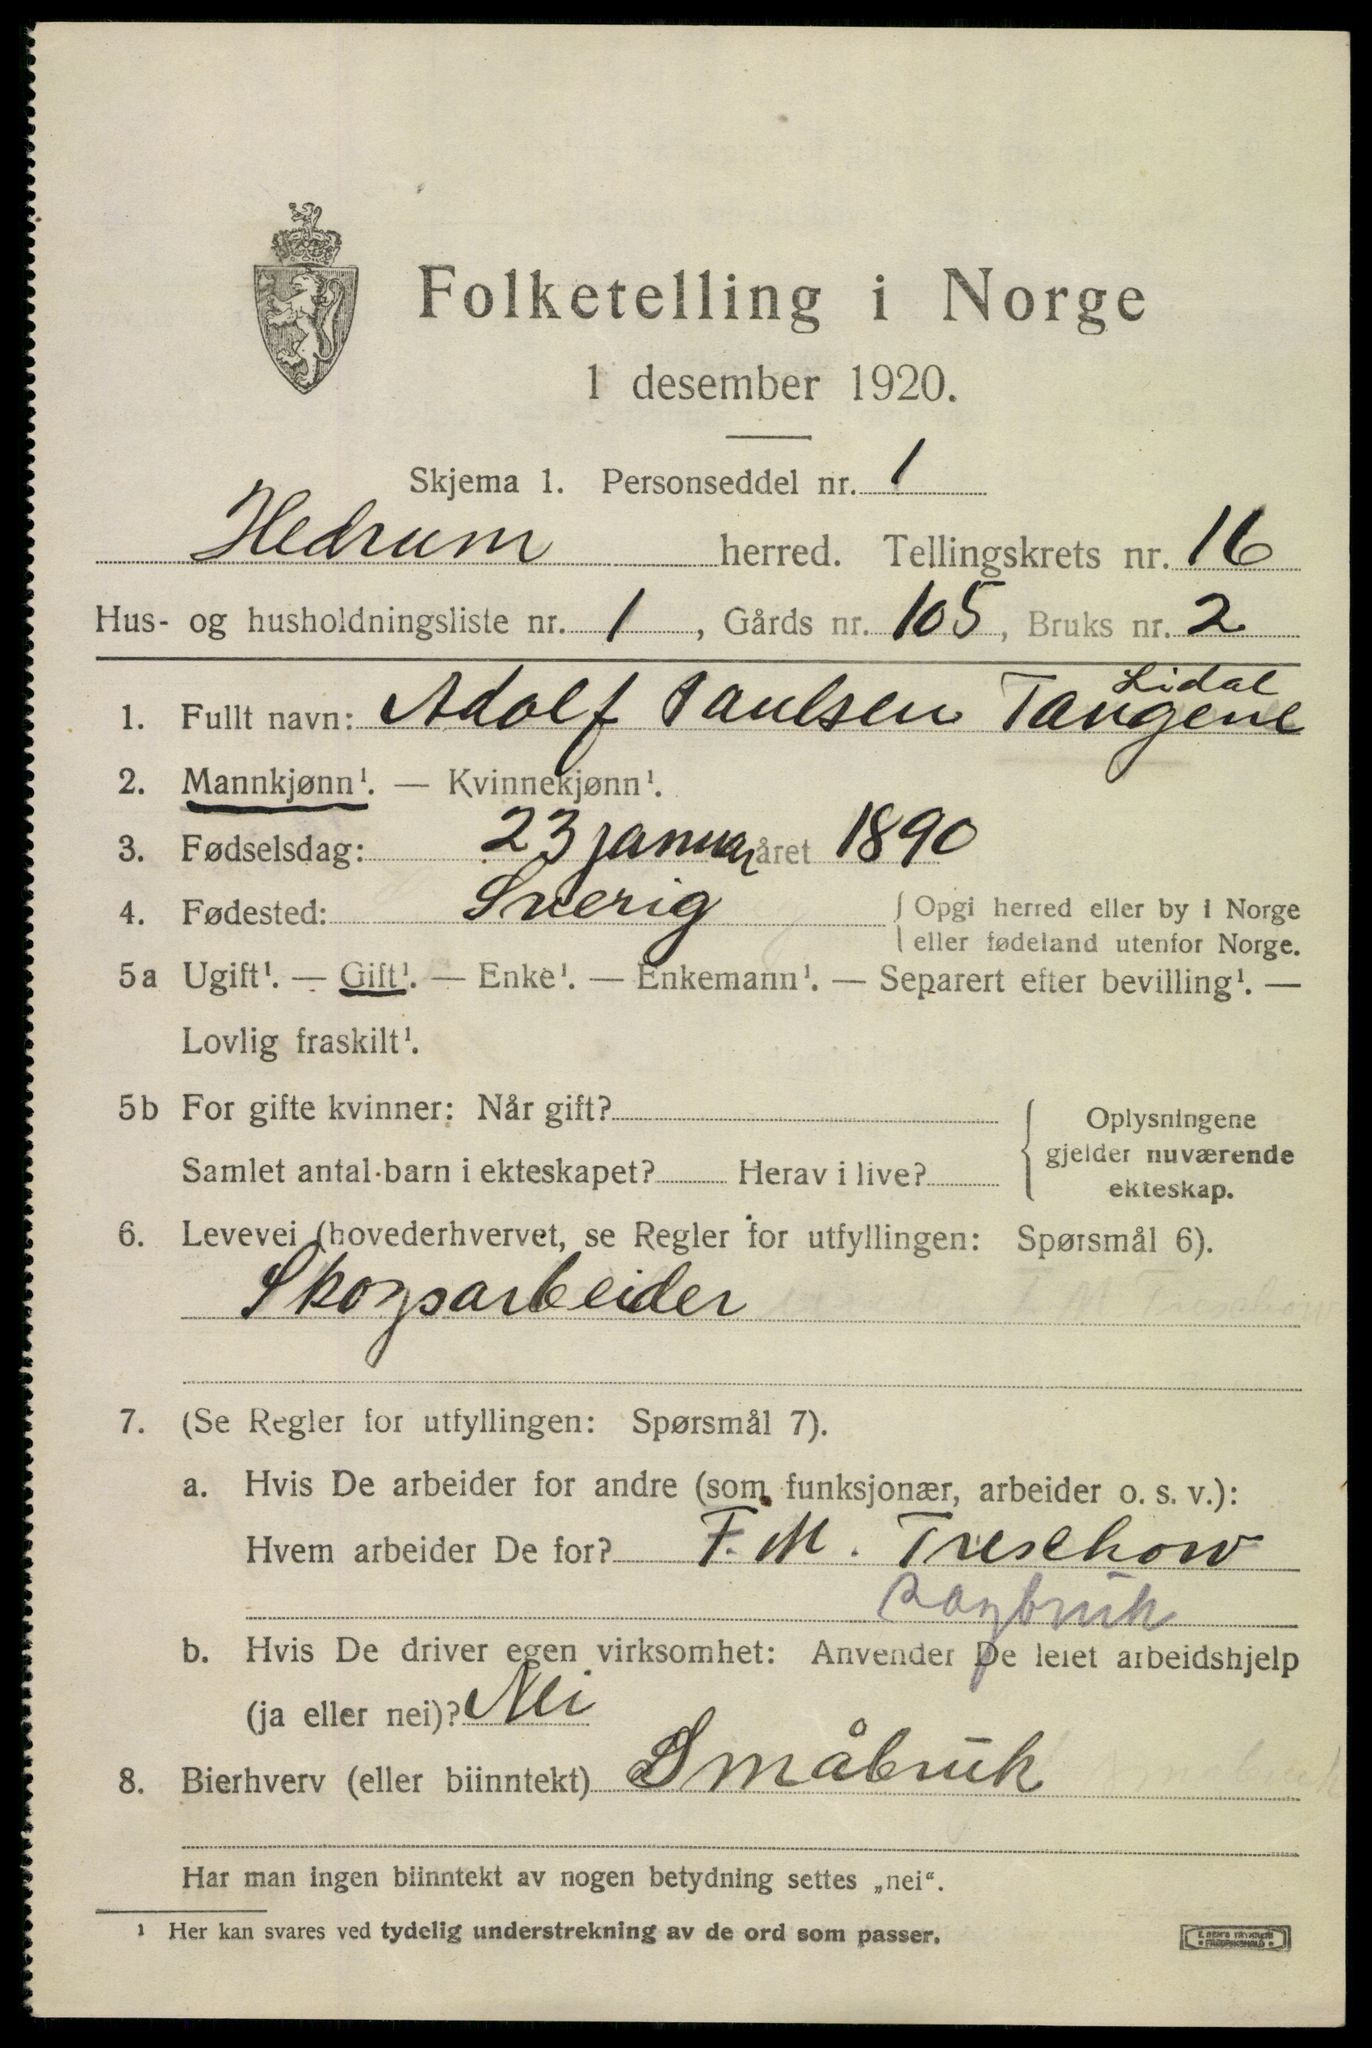 Folketelling i Norge
1 desember 1920.
Skjema 1. Personseddel nr. 1
Hedrum herred. Tellingskrets nr. 16
Hus- og husholdningsliste nr. 1, Gårds nr. 105, Bruks nr. 2
Lidal
1. Fullt navn: Adolf Paulsen Tangene
2. Mannkjønn¹. — Kvinnekjønn¹.
3. Fødselsdag: 23 januar året 1890
4. Fødested: Sverig { Opgi herred eller by i Norge
eller fødeland utenfor Norge.
5a Ugift¹. — Gift¹. — Enke¹. — Enkemann¹. — Separert efter bevilling¹. —
Lovlig fraskilt¹.
5b For gifte kvinner: Når gift?
Samlet antal barn i ekteskapet? Herav i live?
Oplysningene
gjelder nuværende
ekteskap.
6. Levevei (hovederhvervet, se Regler for utfyllingen: Spørsmål 6).
Skogsarbeider
7. (Se Regler for utfyllingen: Spørsmål 7).
a. Hvis De arbeider for andre (som funksjonær, arbeider o. s. v.):
Hvem arbeider De for? F. M. Treschow
b. Hvis De driver egen virksomhet: Anvender De leiet arbeidshjelp
(ja eller nei)? Nei
8. Bierhverv (eller biinntekt) Småbruk
Har man ingen biinntekt av nogen betydning settes „nei“.
¹ Her kan svares ved tydelig understrekning av de ord som passer.